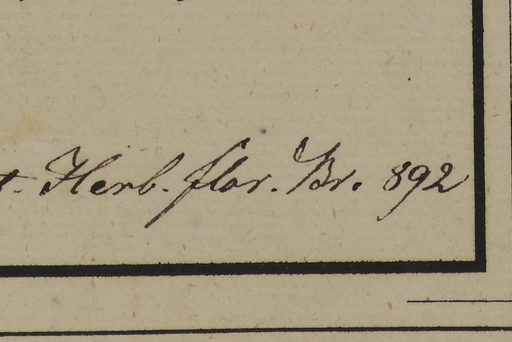 t. Herb. flor. Br. 892